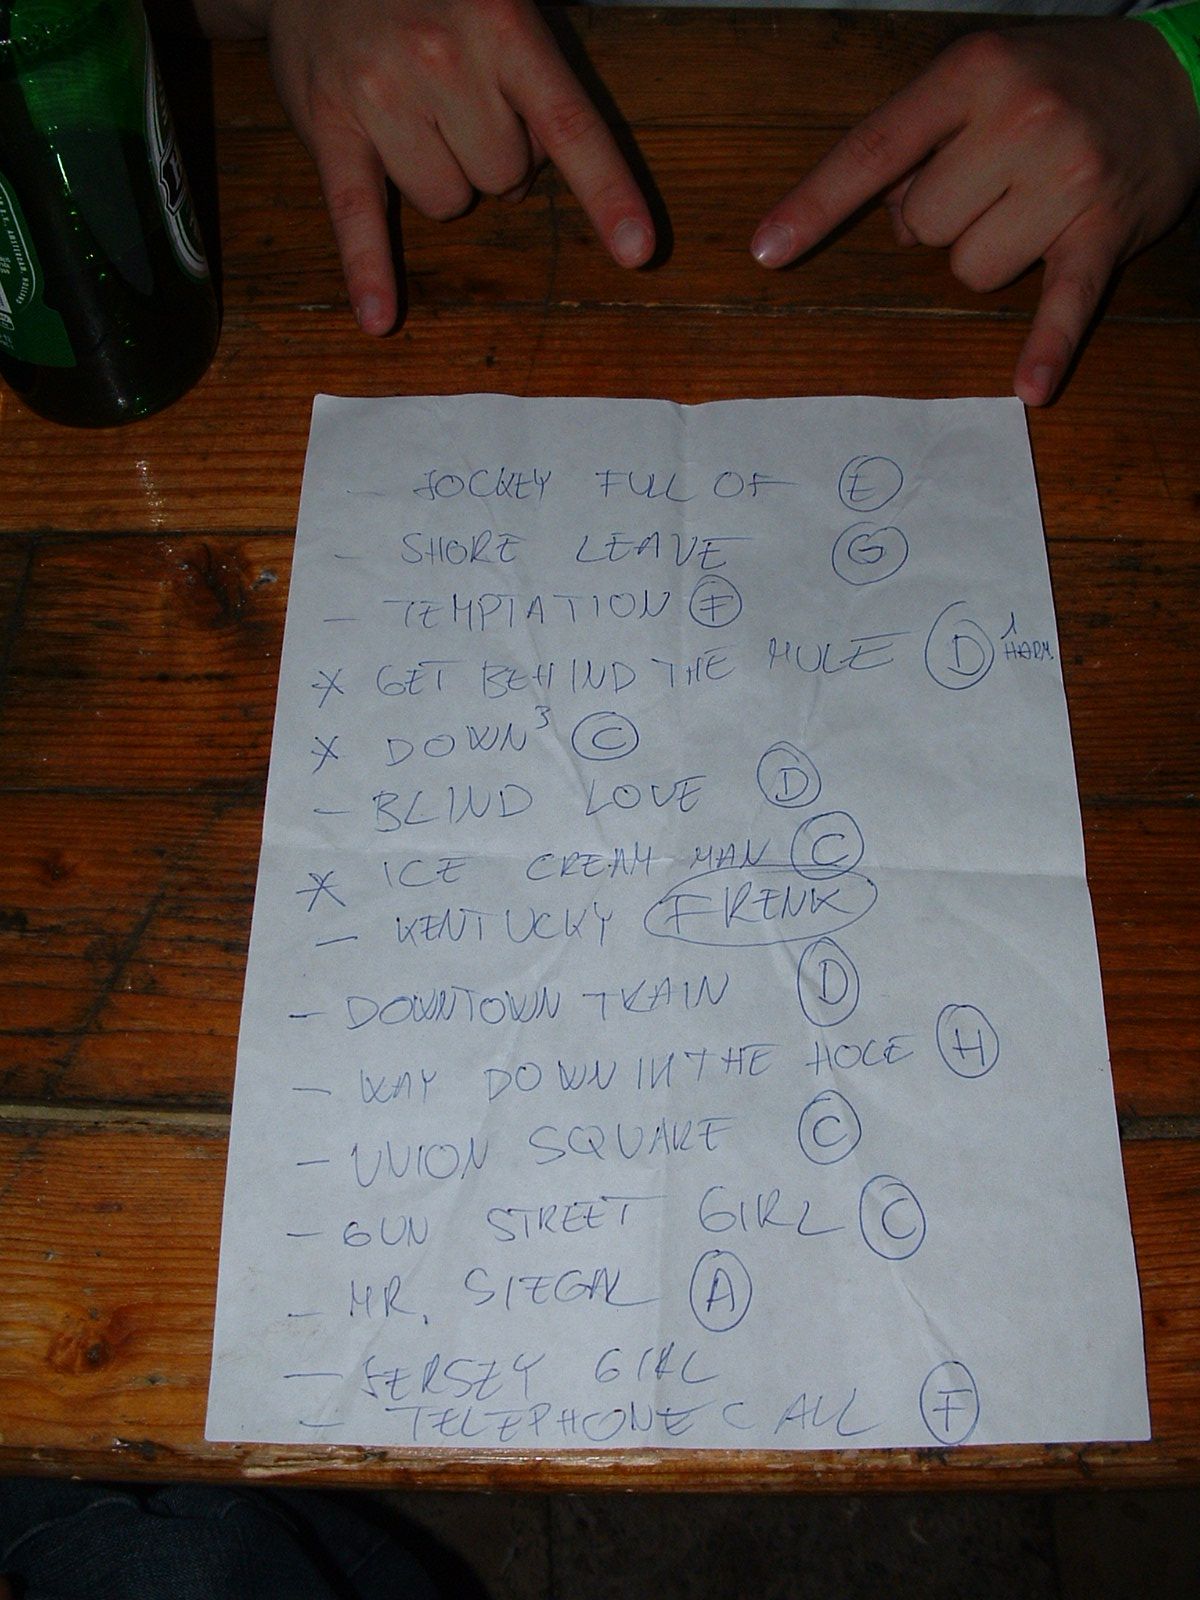 - JOCKEY FULL OF E
- SHORE LEAVE G
- TEMPTATION F
X GET BEHIND THE MULE D 1 HARM.
X DOWN3 C
- BLIND LOVE D
X ICE CREAM MAN C
- KENTUCKY FRENK
- DOWNTOWN TRAIN D
- WAY DOWN IN THE HOLE H
- UNION SQUARE C
- GUN STREET GIRL C
- MR. SIEGAL A
- JERSEY GIRL
- TELEPHONE CALL F